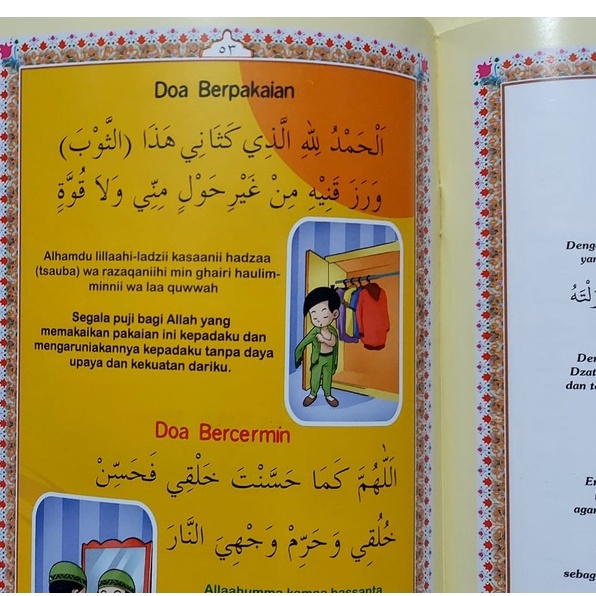 ٥٣
Doa Berpakaian
اَلْحَمْدُ لِلّٰهِ الَّذِي كَثَانِي هَذَا (الثَّوْبَ)
وَرَزَ قَنِيْهِ مِنْ غَيْرِ حَوْلٍ مِنِّي وَلاَ قُوَّةٍ
Alhamdu lillaahi-ladzii kasaanii hadzaa
(tsauba) wa razaqaniihi min ghairi haulim-
minnii wa laa quwwah
Segala puji bagi Allah yang
memakaikan pakaian ini kepadaku dan
mengaruniakannya kepadaku tanpa daya
upaya dan kekuatan dariku.
Doa Bercermin
اَللّٰهُمَّ كَمَا حَسَّنْتَ خَلْقِي فَحَسِّنْ
خُلُقِي وَحَرِّمْ وَجْهِيَ النَّارَ
Allaahumma kamaa hassanta
Denga
yan
Den
Dzat
dan
En
agar
sebag